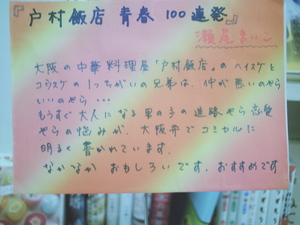 『戸村飯店 青春 100連発』
瀬尾まいこ
大阪の中華料理屋「戸村飯店」のヘイスケと
コウスケの1つちがいの兄弟は、仲が悪いのやら
いいのやら…
もうすぐ大人になる男の子の進路やら恋愛
やらの悩みが、大阪弁でコミカルに
明るく書かれています。
なかなか おもしろいです。おすすめです